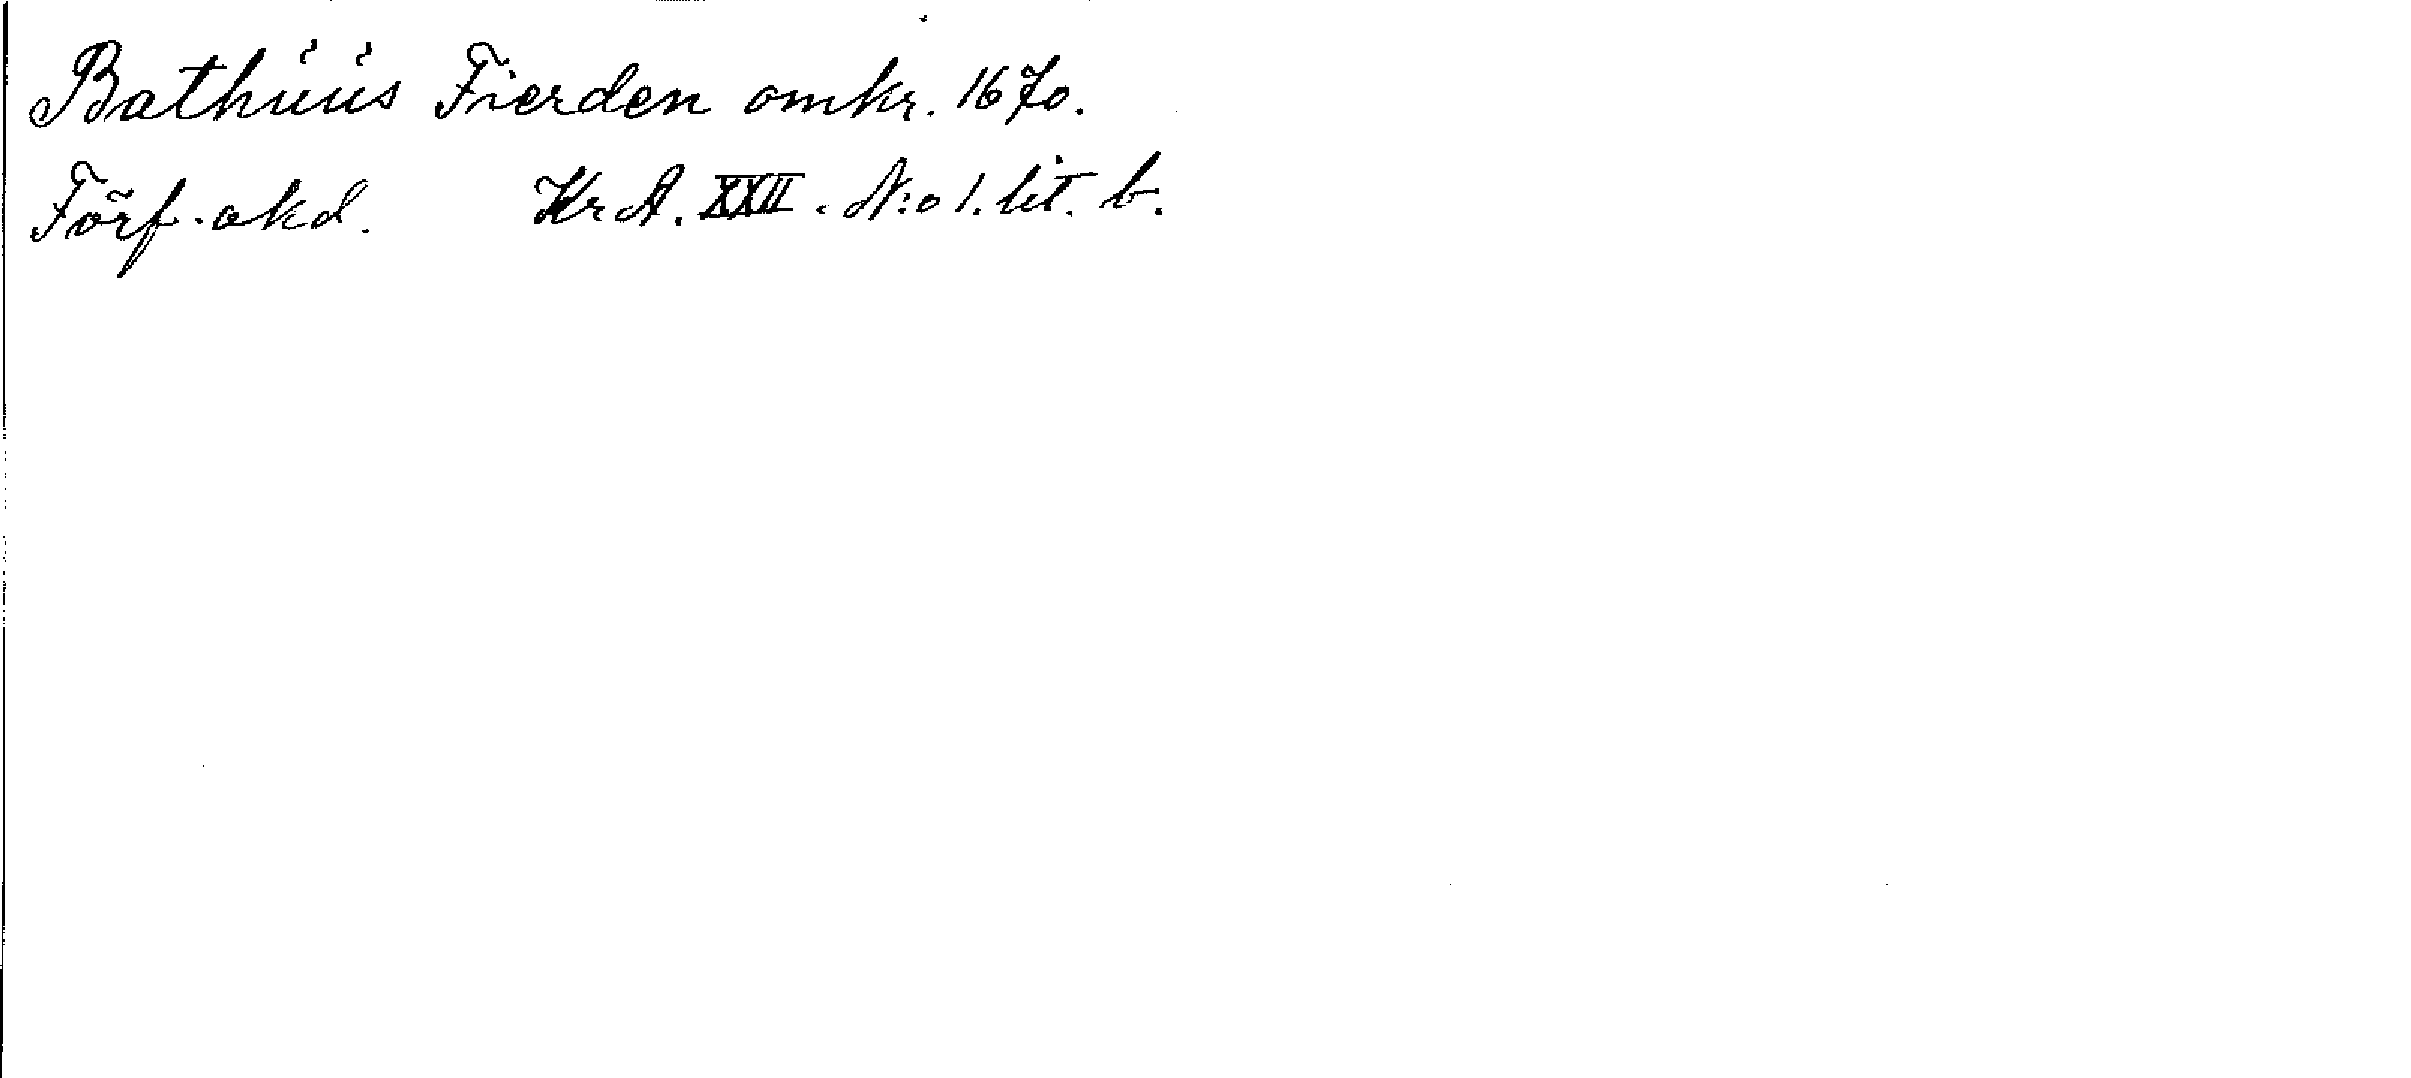 Bathúús Fierden omkr. 1670.
Förf. okd. Kr A. XXII. N:o 1. lit. b.